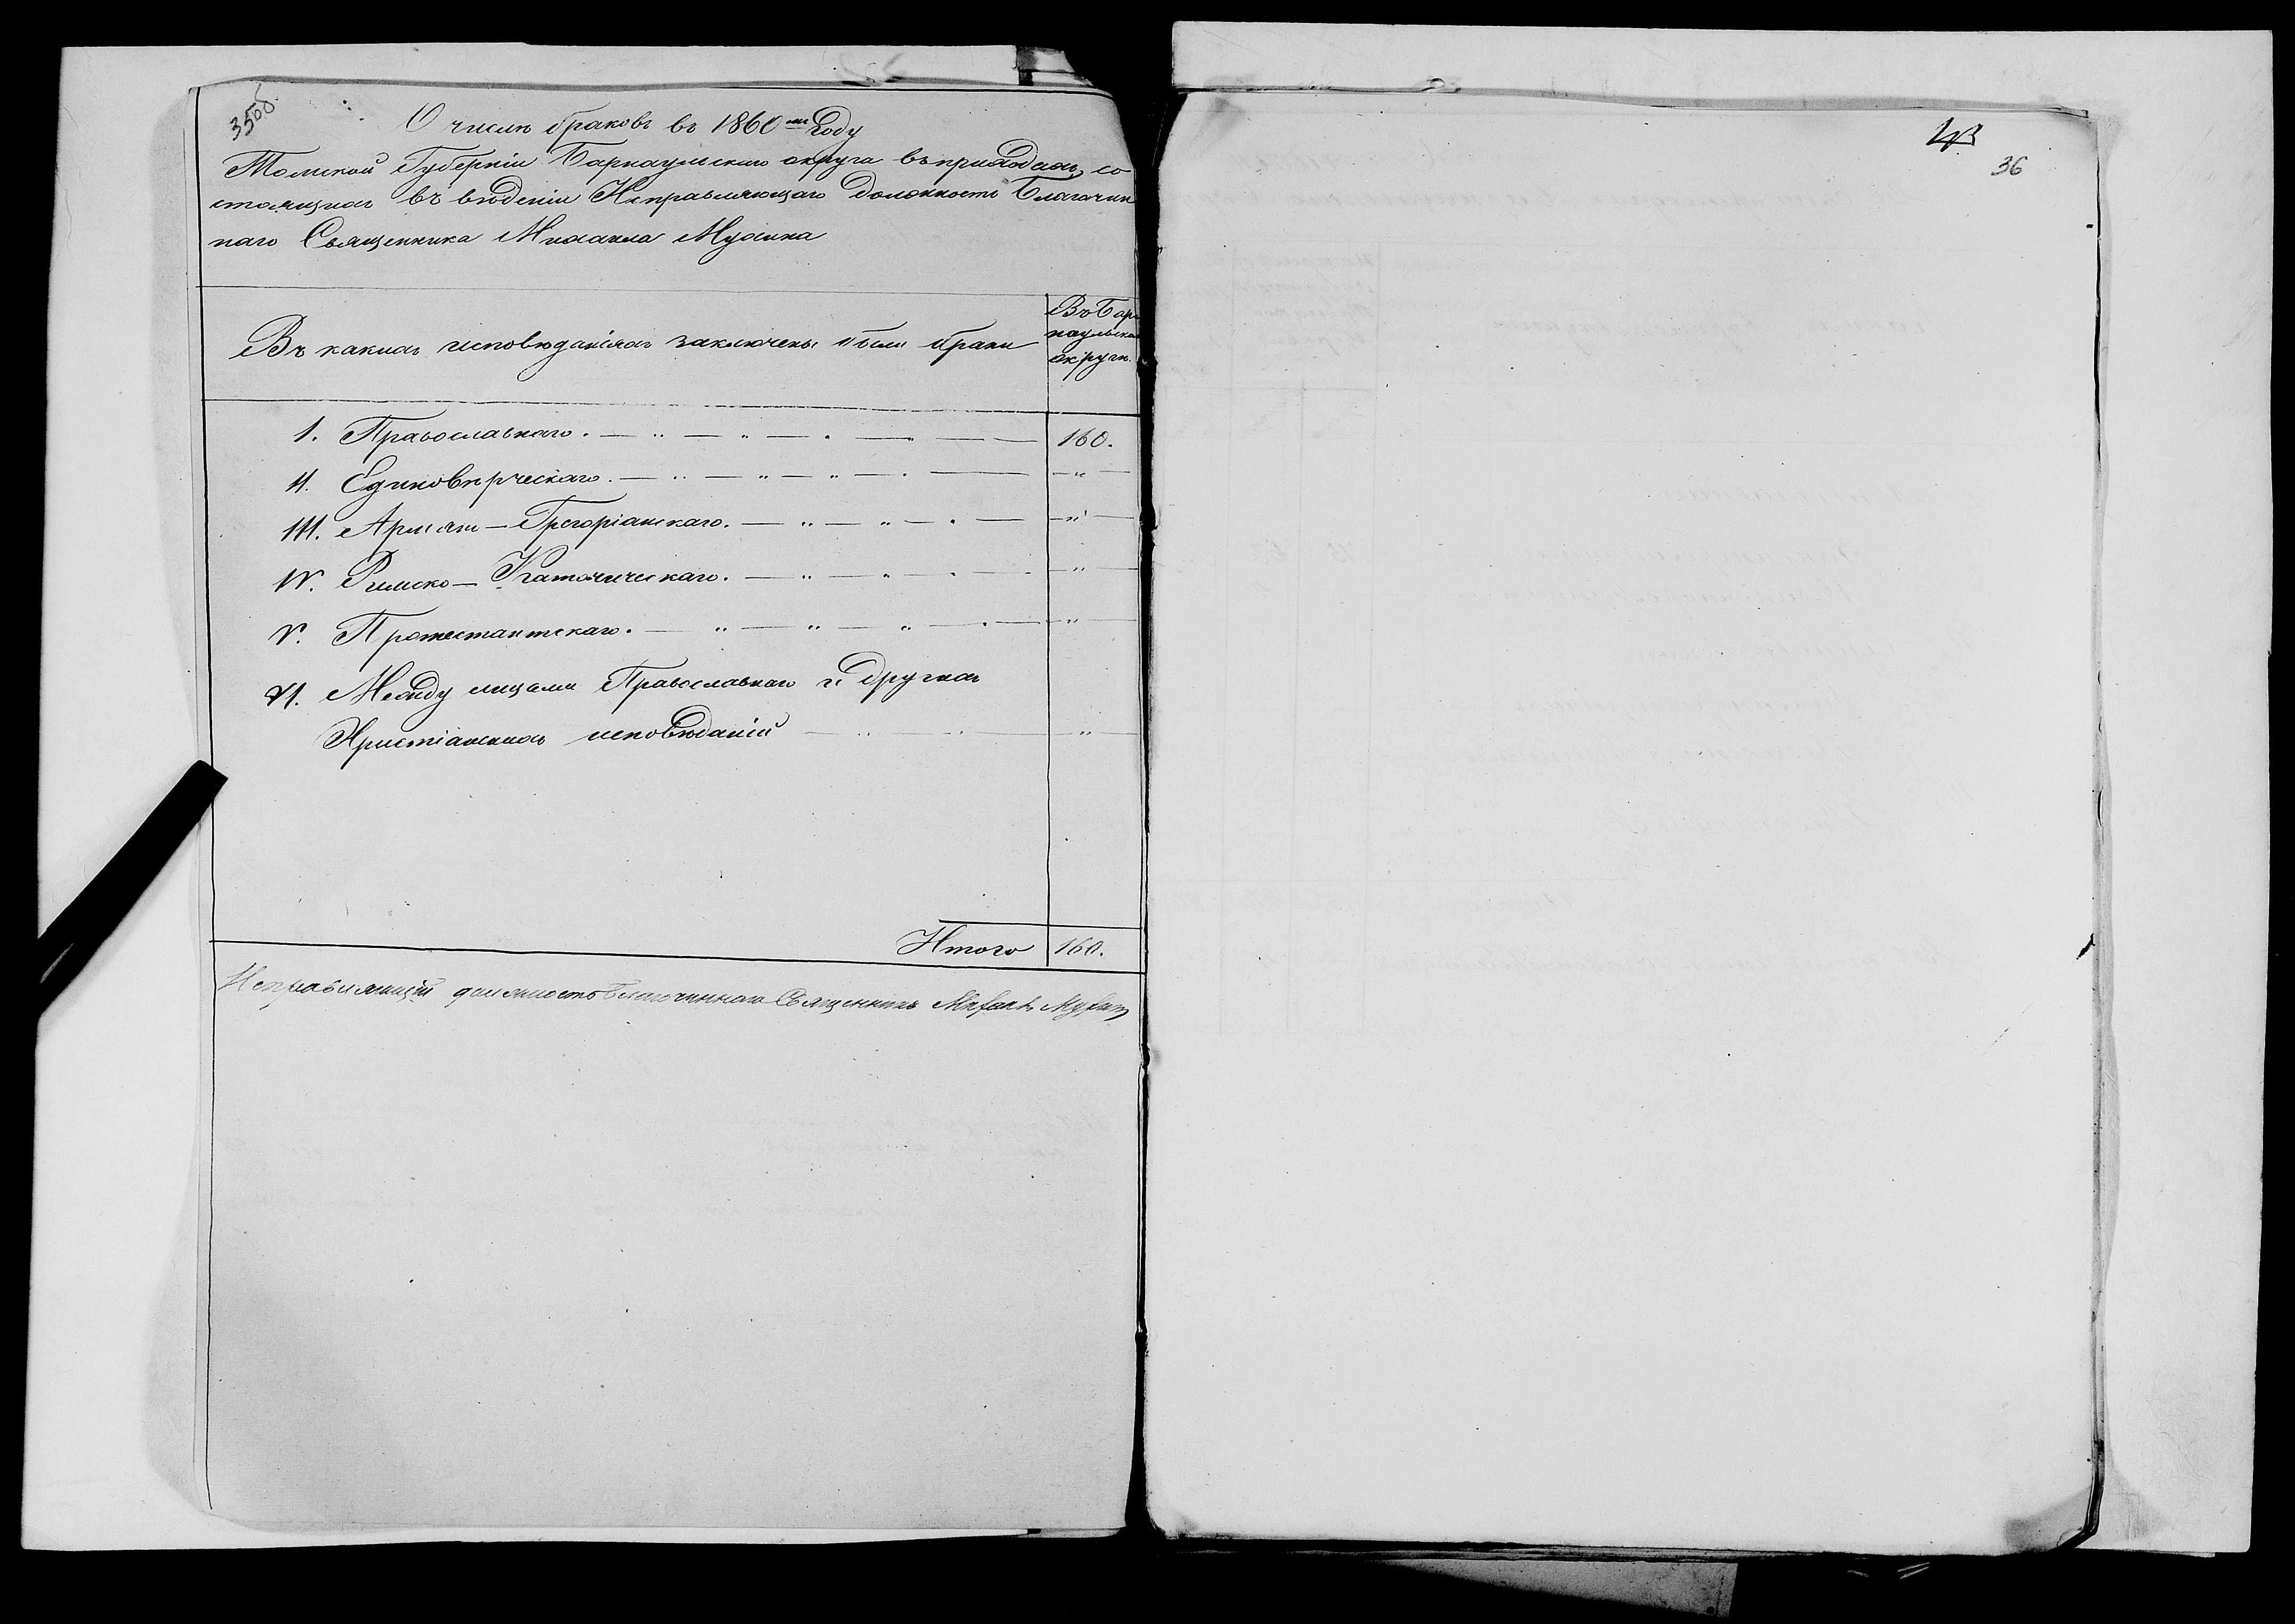 35об.
О числѣ браковъ въ 1860 мъ Году
Томской Губерніи Барнаульскаго округа въ приходахъ, со
стоящихъ въ вѣденіи Исправляющаго Должность Благочин
наго Священника Михаила Мухина
Въ какихъ исповѣданіяхъ заключены были браки
Въ Бар
наульском
округѣ.
I. Православнаго. — „ — „ — „ — 160.
II. Единовѣрческаго. — „ — „ — „ — „
III. Армяно-Грегоріанскаго. — „ — „ — „
IV. Римско-Католическаго. — „ — „ — „
V. Протестантскаго. — „ — „ — „ — „
VI. Между лицами Православнаго и Другихъ
Христіанскихъ исповѣданій — „ — „
Итого 160.
Исправляющій должность Благочиннаго Священникъ Михаилъ Мухинъ
36